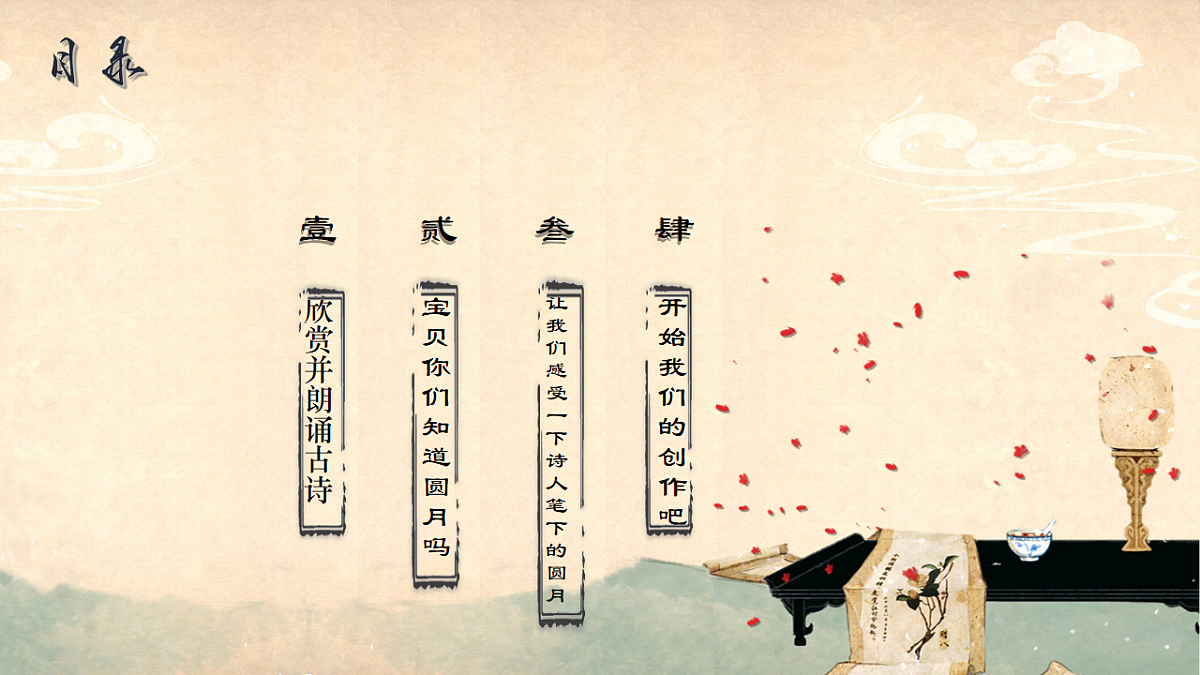 目录
壹
欣赏并朗诵古诗
贰
宝贝你们知道圆月吗
叁
让我们感受一下诗人笔下的圆月
肆
开始我们的创作吧